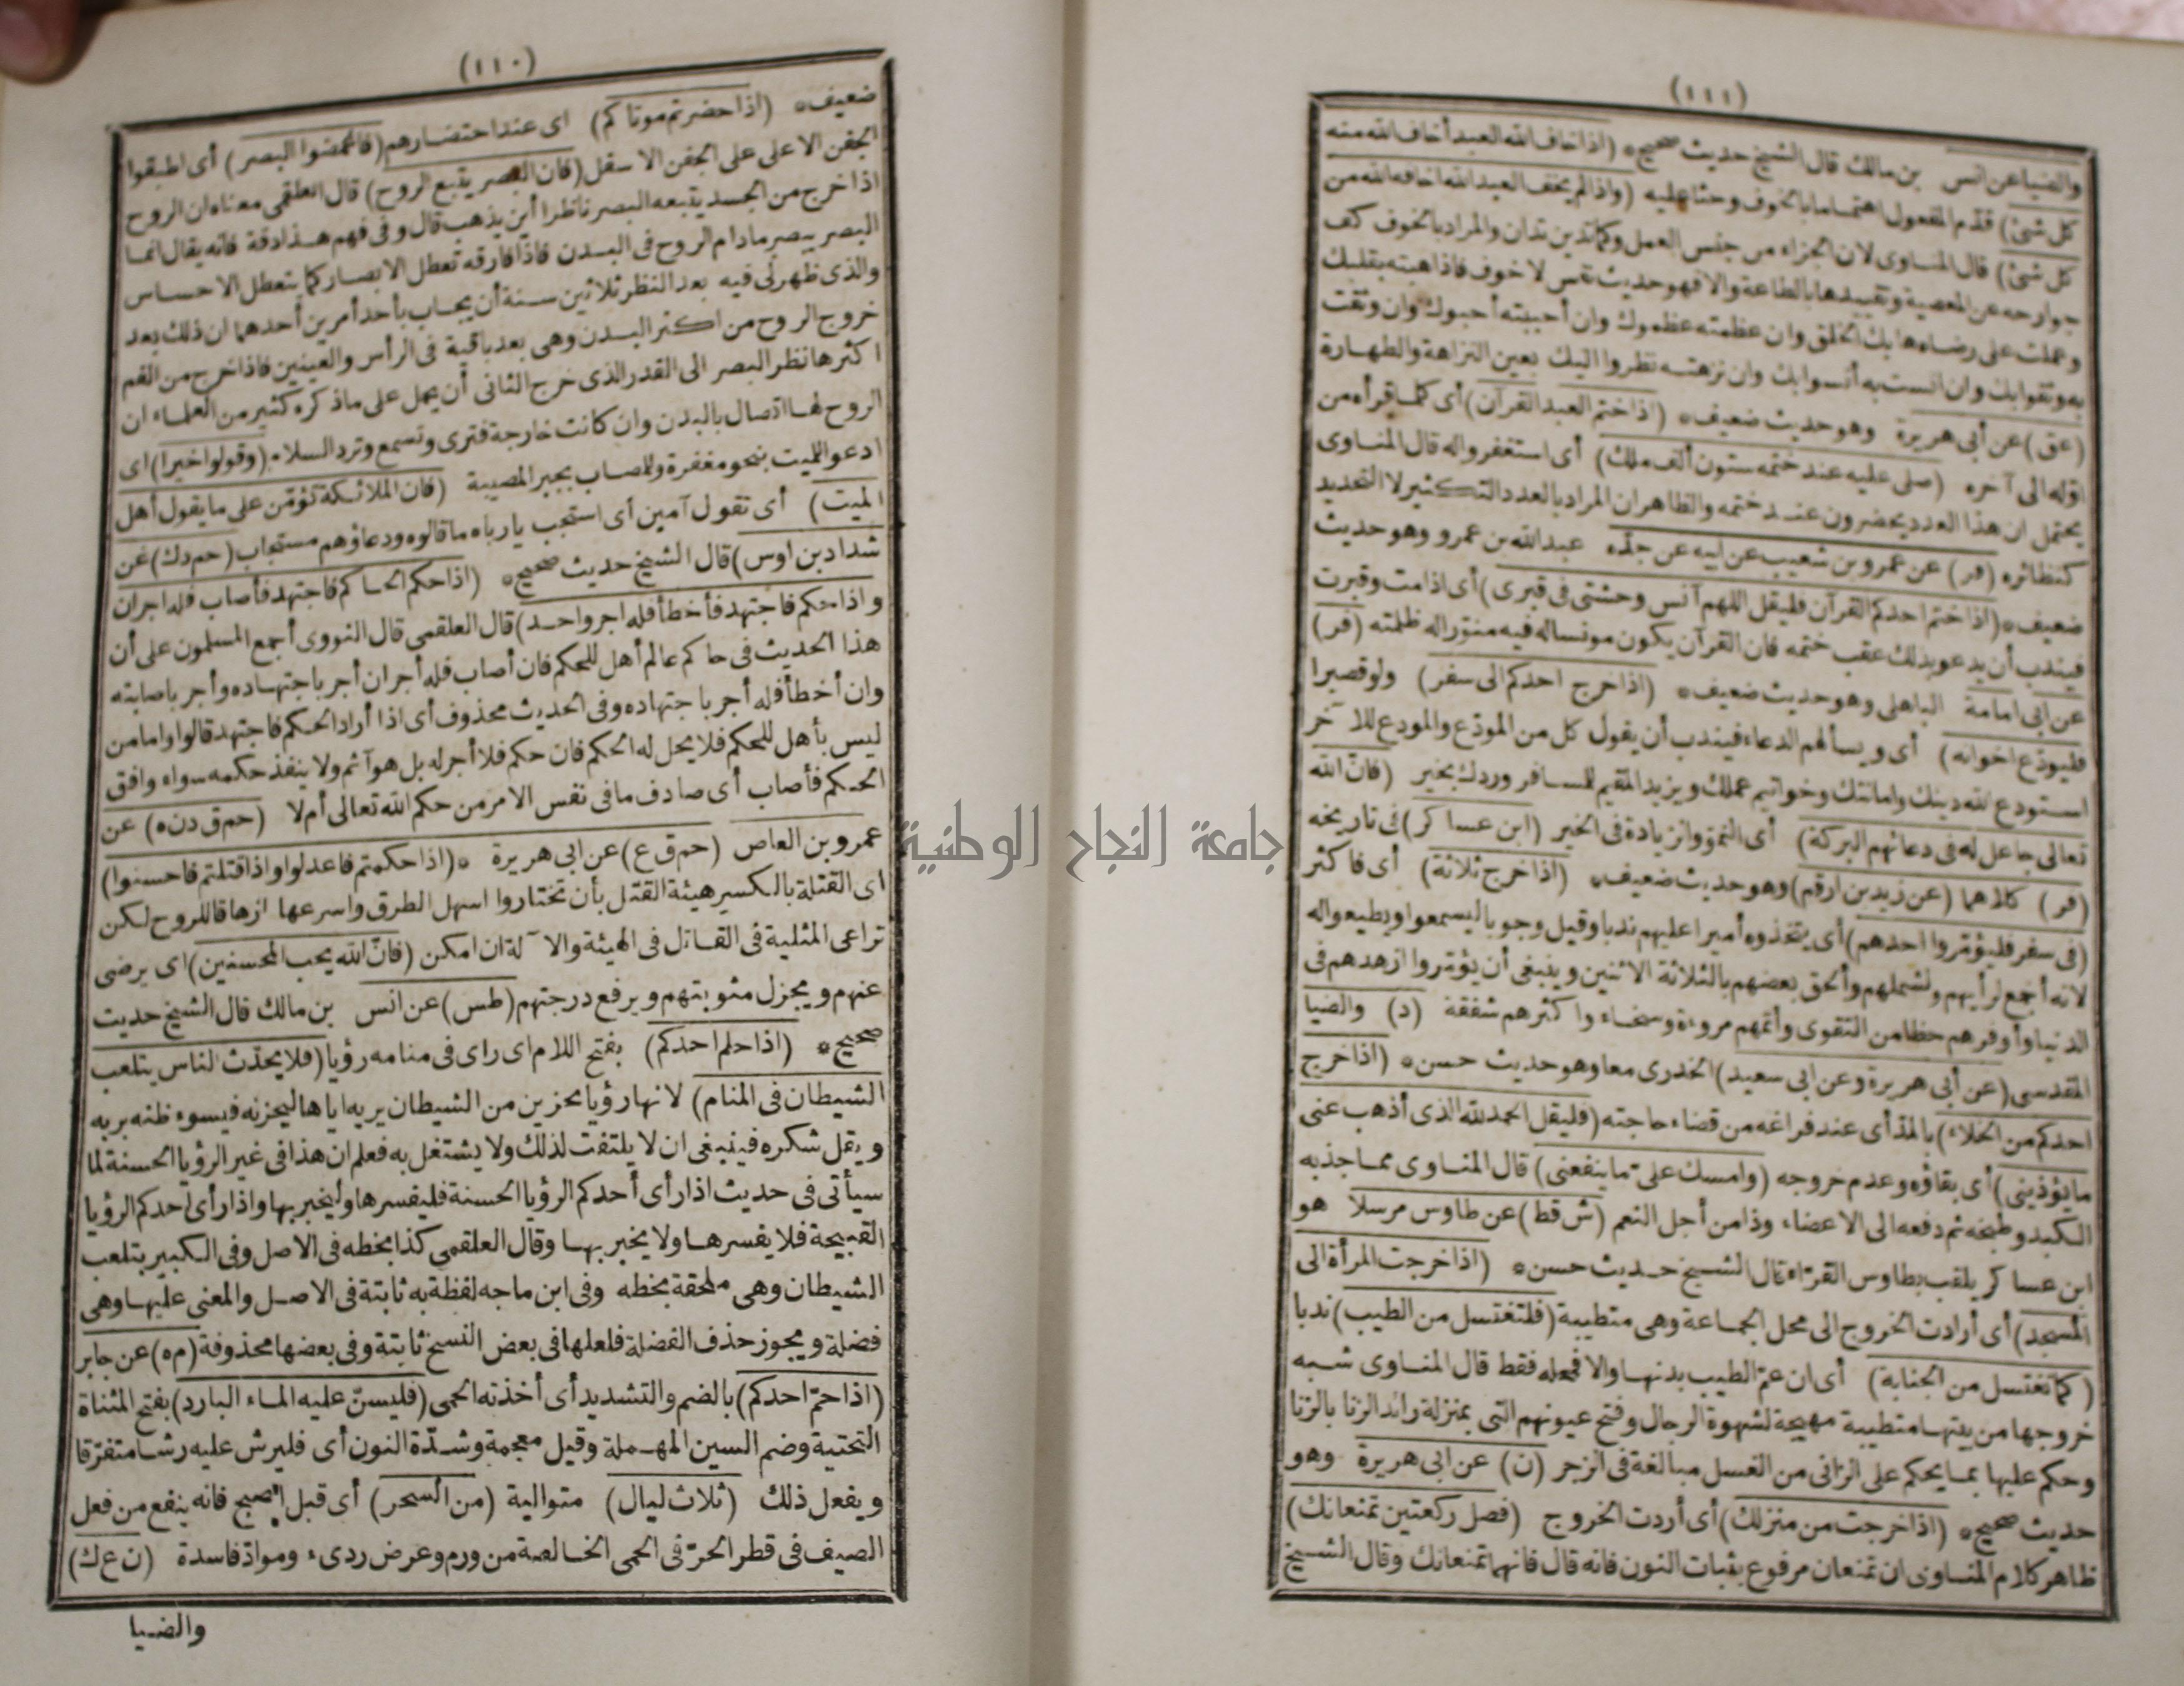 (١١٠)
ضعيف* (اذا حضرتم موتاكم) اى عند احتضارهم (فاغمضوا البصر) أى اطبقوا
الجفن الاعلى على الجفن الاسفل (فان البصر يتبع الروح) قال العلقمى معناه ان الروح
اذا خرج من الجسد يتبعه البصر ناظرا أين يذهب قال وفى فهم هذا دقة فانه يقال انما
البصر يبصر مادام الروح فى البدن فاذا فارقه تعطل الابصار كما يتعطل الاحساس
والذى ظهر لى فيه بعد النظر ثلاثين سنة أن يجاب بأحد أمرين أحدهما ان ذلك بعد
خروج الروح من اكثر البدن وهى بعد باقية فى الرأس والعينين فاذا خرج من الفم
اكثرها نظر البصر الى القدر الذى خرج الثانى أن يحمل على ما ذكره كثير من العلماء ان
الروح لها اتصال بالبدن وان كانت خارجة فترى وتسمع وترد السلام (وقولوا خيرا) اى
ادعو الميت بنحو مغفرة وللمصاب بجبر المصيبة (فان الملائكة تؤمّن على ما يقول أهل
الميت) أى تقول آمين أى استجب يارباه ما قالوه ودعاؤهم مستجاب (حم د ك) عن
شداد بن اوس) قال الشيخ حديث صحيح* (اذا حكم الحاكم فاجتهد فأصاب فله اجران
واذا حكم فاجتهد فأخطأ فله اجر واحد) قال العلقمى قال النووى أجمع المسلمون على أن
هذا الحديث فى حاكم عالم أهل للحكم فان أصاب فله أجران أجر باجتهاده وأجر باصابته
وان أخطأ فله أجر باجتهاده وفى الحديث محذوف أى اذا أراد الحكم فاجتهد قالوا وامامن
ليس بأهل للحكم فلا يحل له الحكم فان حكم فلا أجر له بل هو آثم ولا ينفذ حكمه سواء وافق
الحكم فأصاب أى صادف ما فى نفس الامر من حكم الله تعالى أم لا (حم ق د ن ه) عن
عمرو بن العاص (حم ق ع) عن ابى هريرة *(اذا حكمتم فاعدلوا واذا قتلتم فاحسنوا)
اى القتلة بالكسر هيئة القتل بأن تختاروا اسهل الطرق واسرعها ازهاقا للروح لكن
تراعى المثلية فى القاتل فى الهيئة والآلة ان امكن (فانّ الله يحب المحسنين) اى يرضى
عنهم ويجزل مثوبتهم ويرفع درجتهم (طس) عن انس بن مالك قال الشيخ حديث
صحيح* (اذا حلم احدكم) بفتح اللام اى راى فى منامه رؤيا (فلا يحدّث الناس بتلعب
الشيطان فى المنام) لانها رؤيا تحزين من الشيطان يريه اياها ليحزنه فيسوء ظنه بربه
ويقل شكره فينبغى ان لا يلتفت لذلك ولا يشتغل به فعلم ان هذا فى غير الرؤيا الحسنة لما
سيأتى فى حديث اذا رأى أحدكم الرؤيا الحسنة فليفسرها وليخبر بها واذا رأى احدكم الرؤيا
القبيحة فلا يفسرها ولا يخبر بها وقال العلقمى كذا بخطه فى الاصل وفى الكبير بتلعب
الشيطان وهى ملحقة بخطه وفى ابن ماجه لفظة به ثابتة فى الاصل والمعنى عليها وهى
فضلة ويجوز حذف الفضلة فلعلها فى بعض النسخ ثابتة وفى بعضها محذوفة (م ه) عن جابر
(اذا حمّ احدكم) بالضم والتشديد أى أخذته الحمى (فليسنّ عليه الماء البارد) بفتح المثناة
التحتية وضم السين المهملة وقيل معجمة وشدّة النون أى فليرش عليه رشا متفرّقا
ويفعل ذلك (ثلاث ليال) متوالية (من السحر) أى قبل الصبح فانه ينفع من فعل
الصيف فى قطر الحرّ فى الحمى الخالصة من ورم وعرض ردىء ومواد فاسدة (ن ع ك)
والضيا
(١١١)
والضيا عن انس بن مالك قال الشيخ حديث صحيح* (اذا خاف الله العبد أخاف الله منه
كل شئ) قدّم المفعول اهتماما بالخوف وحثا عليه (واذا لم يخف العبد الله اخافه الله من
كل شئ) قال المناوى لان الجزاء من جنس العمل وكما تدين تدان والمراد بالخوف كف
جوارحه عن المعصية وتقييدها بالطاعة والا فهو حديث نفس لا خوف فاذا هبته بقلبك
وعملت على رضاه هابك الخلق وان عظمته عظموك وان أحببته أحبوك وان وثقت
به وثقوا بك وان انست به أنسوا بك وان نزهته نظروا اليك بعين النزاهة والطهارة
(عق) عن أبى هريرة وهو حديث ضعيف* (اذا ختم العبد القرآن) أى كلما قرأه من
اوّله الى آخره (صلى عليه عند ختمه ستون ألف ملك) أى استغفروا له قال المناوى
يحتمل ان هذا العدد يحضرون عند ختمه والظاهر ان المراد بالعدد التكثير لا التحديد
كنظائره (فر) عن عمرو بن شعيب عن ابيه عن جدّه عبد الله بن عمرو وهو حديث
ضعيف* (اذا ختم احدكم القرآن فليقل اللهم آنس وحشتى فى قبرى) أى اذا مت وقبرت
فيندب أن يدعو بذلك عقب ختمه فان القرآن يكون مونسا له فيه منوّرا له ظلمته (فر)
عن ابى امامة الباهلى وهو حديث ضعيف* (اذا خرج احدكم الى سفر) ولو قصيرا
فليودّع اخوانه) أى ويسألهم الدعاء فيندب أن يقول كل من المودّع والمودع للآخر
استودع الله دينك وامانتك وخواتيم عملك ويزيد المقيم للمسافر وردك بخير (فانّ الله
تعالى جاعل له فى دعائهم البركة) أى النمو والزيادة فى الخير (ابن عساكر) فى تاريخه
(فر) كلاهما (عن زيد بن ارقم) وهو حديث ضعيف* (اذا خرج ثلاثة) أى فاكثر
(فى سفر فليؤمّروا احدهم) أى يتخذوه أميرا عليهم ندبا وقيل وجوبا ليسمعوا ويطيعوا له
لانه أجمع لرأيهم ولشملهم وألحق بعضهم بالثلاثة الاثنين وينبغى أن يؤمّروا ازهدهم فى
الدنيا وأوفرهم حظا من التقوى وأتمهم مروءة وسخاء واكثرهم شفقة (د) والضيا
المقدسى (عن أبى هريرة وعن ابى سعيد) الخدرى معا وهو حديث حسن* (اذا خرج
احدكم من الخلاء) بالمدّ أى عند فراغه من قضاء حاجته (فليقل الحمد لله الذى أذهب عنى
ما يؤذينى) أى بقاؤه وعدم خروجه (وامسك علىّ ما ينفعنى) قال المناوى مما جذبه
الكبد وطبخه ثم دفعه الى الاعضاء وذا من أجل النعم (ش قط) عن طاوس مرسلا هو
ابن عساكر يلقب بطاوس القرّاء قال الشيخ حديث حسن* (اذا خرجت المرأة الى
المسجد) أى أرادت الخروج الى محل الجماعة وهى متطيبة (فلتغتسل من الطيب) ندبا
(كما تغتسل من الجنابة) أى ان عمّ الطيب بدنها والا فمحله فقط قال المناوى شبه
خروجها من بيتها متطيبة مهيجة لشهوة الرجال وفتح عيونهم التى بمنزلة رائد الزنا بالزنا
وحكم عليها بما يحكم على الزانى من الغسل مبالغة فى الزجر (ن) عن ابى هريرة وهو
حديث صحيح* (اذا خرجت من منزلك) أى أردت الخروج (فصل ركعتين تمنعانك)
ظاهر كلام المناوى ان تمنعان مرفوع بثبات النون فانه قال فانهما تمنعانك وقال الشيخ
جامعة النجاح الوطنية